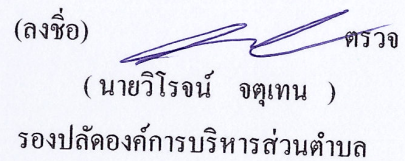 (ลงชื่อ) ตรวจ
( นายวิโรจน์ จตุเทน )
รองปลัดองค์การบริหารส่วนตำบล